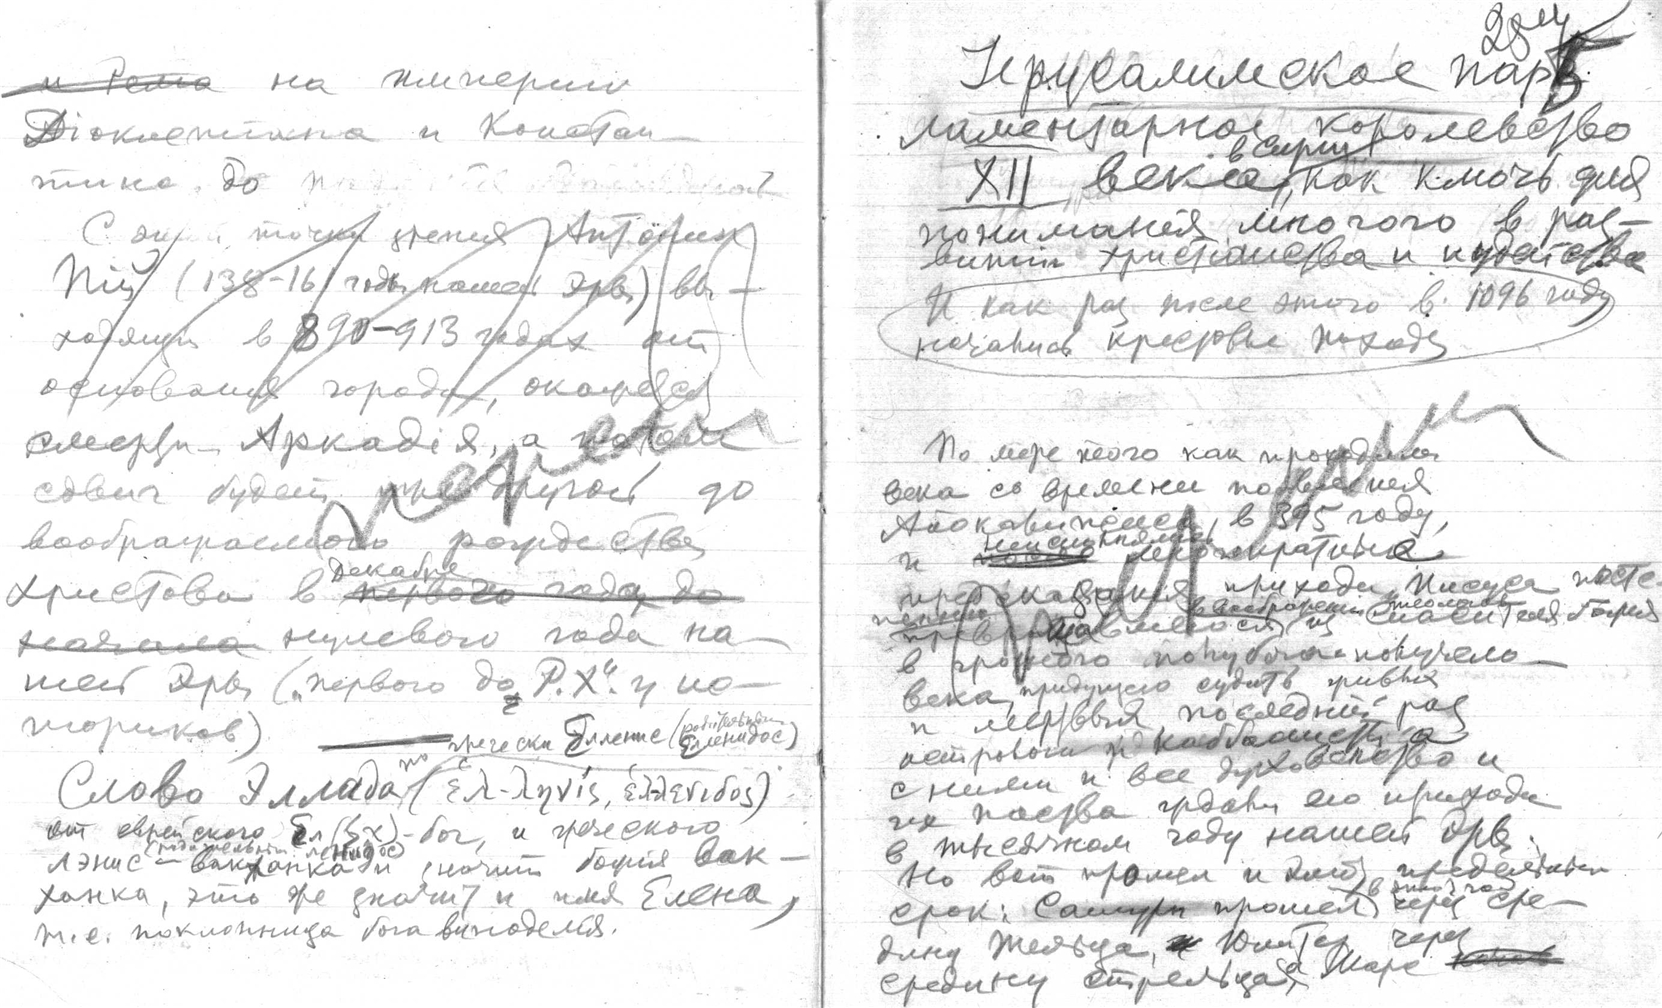 и Рема на империи
Діоклетиана и Констан
тина до
С этой точки зрения Антонин
Пій (138-161 годы нашей эры) вы-
ходящий в 890-913 годах от
основания города, окажется
смерди Аркадія, а потом
сдвиг будет уже другой до
воображаемого рождества
Христова в декабре первого года до
начала нулевого года на-
шей эры („первого до Р.Х“. у ис-
ториков)
по гречески Елленис (родительный Елленидос)
Слово Эллада (ἑλ-ληνίς, ἑλλενιδος)
от еврейского Ел - бог, и греческого
лэнис (родительный ленидос) — вакханка и значит божия вак-
ханка, это же значит и имя Елена,
т.е. поклонница бога виноделия.
28
Иерусалимское пар
ламентарное королевство
XII века в Сирии, как ключь для
понимания многого в раз-
витии христианства и иудейства
И как раз после этого в 1096 году
начались крестовые походы
По мере того как проходили
века со времени появления
Апокалипсиса, в 395 году,
и неисполнялись многократные
предсказания прихода Иисуса посте-
пенно в воображении теологов
превращавшегося из спасителя Божия
в грозного полубога-получело-
века, придущего судить живых
и мертвых, последний раз
астрологи и каббалисты а
с ними и все духовенство и
их паства ждали его прихода
в тысячном году нашей эры.
Но вот прошел и этот предельный
срок: Сатурн прошел в этот год через сре-
дину Тельца, Юпитер через
средину стрельца, а Марс